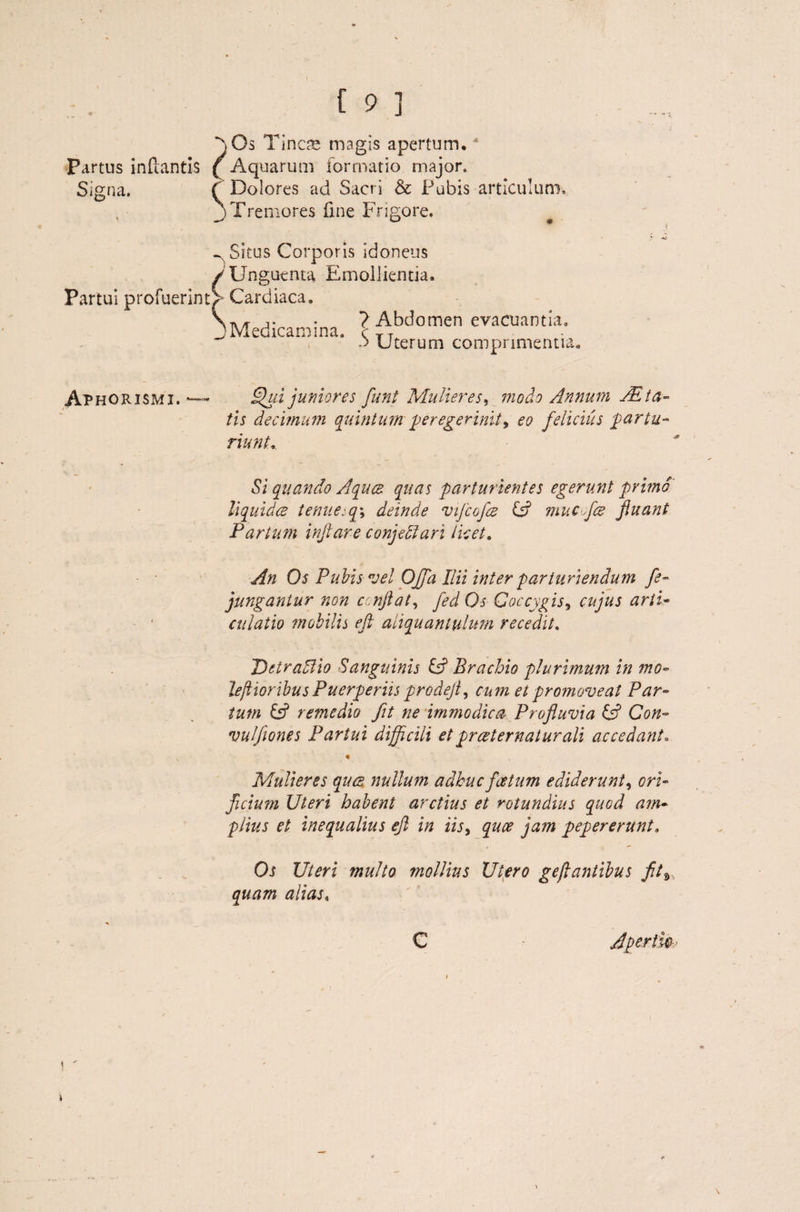 [ 9 ]
Os Tincæ magis apertum.
Partus inſtantis Aquarum formatio major.
Signa. Dolores ad Sacri & Pubis articulum.
Tremores ſine Frigore.
Situs Corporis idoneus
Unguenta Emollientia.
Partui profuerint Cardiaca.
Medicamina. Abdomen evacuantia.
Uterum comprimentia.
APHORISMI. — Qui juniores ſunt Mulieres, modo Annum Æta-
tis decimum quintum peregerinit, eo feliciús partu-
riunt.
Si quando Aquæ quas parturientes egerunt primo
liquidæ tenueſq; deinde viſcoſæ & mucoſæ fluant
Partum inſtare conjectari licet.
An Os Pubis vel Oſſa Ilii inter parturiendum ſe-
jungantur non conſtat, ſed Os Coccygis, cujus arti-
culatio mobilis eſt aliquantulum recedit.
Detractio Sanguinis & Brachio plurimum in mo-
leſtioribus Puerperiis prodeſt, cum et promoveat Par-
tum & remedio ſit ne immodica Profluvia & Con-
vulſiones Partui difficili et præternaturali accedant.
Mulieres quæ nullum adhuc fœtum ediderunt, ori-
ficium Uteri habent arctius et rotundius quod am-
plius et inequalius eſt in iis, quæ jam pepererunt.
Os Uteri multo mollius Utero geſtantibus fit,
quam alias.
C Apertio